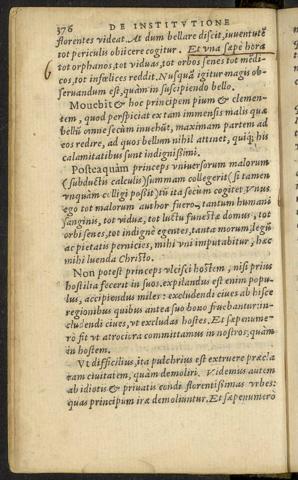 376 DE INSTITVTIONE
florentes videat. At dum bellare discit, iuuentutē
tot periculis obiicere cogitur. Et vna sæpe hora
tot orphanos, tot viduas, tot orbos senes tot mēdi-
cos, tot infœlices reddit. Nusquā igitur magis ob-
seruandum est, quàm in suscipiendo bello.
Mouebit & hoc principem pium & clemen-
tem, quod perspiciat ex tam immensis malis quæ
bellū omne secùm inuehūt, maximam partem ad
eos redire, ad quos bellum nihil attinet, quiq; his
calamitatibus sunt indignissimi.
Posteaquàm princeps vniuersorum malorum
(subductis calculis) summam collegerit (si tamen
vnquàm colligi possit) tū ita secum cogitet. Vnus
ego tot malorum author fuero, tantum humani
sanginis, tot viduæ, tot luctu funestæ domus, tot
orbi senes, tot indignè egentes, tanta morum, legū
ac pietatis pernicies, mihi vni imputabitur, hæc
mihi luenda Christo.
Non potest princeps vlcisci hostem, nisi prius
hostilia fecerit in suos. expilandus est enim popu-
lus, accipiendus miles: excludendi ciues ab hisce
regionibus quibus antea suo bono fruebantur: in-
cludendi ciues, vt excludas hostes. Et sæpenume-
rò fit vt atrociora committamus in nostros, quàm
in hostem.
Vt difficilius, ita pulchrius est extruere præcla
ram ciuitatem, quàm demoliri. Videmus autem
ab idiotis & priuatis condi florentissimas vrbes:
quas principum iræ demoliuntur. Et sæpenumero